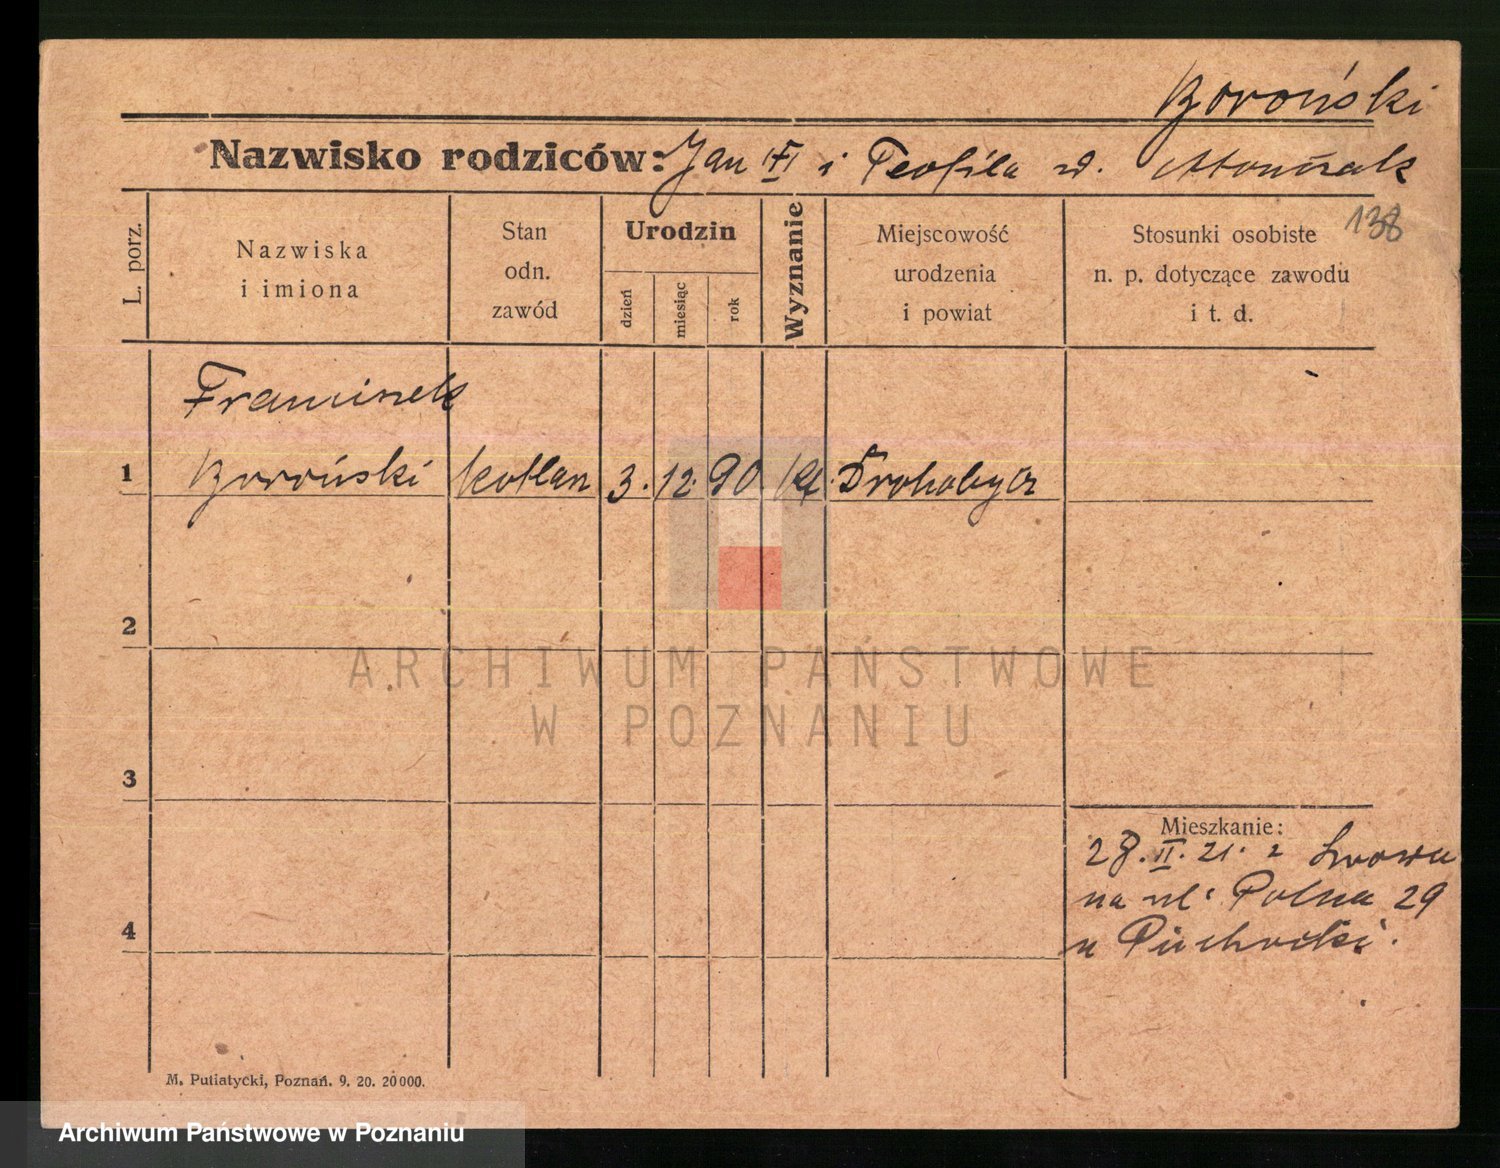 Boroński
Nazwisko rodziców: Jan (F) i Teofila
138
L. porz.
Nazwiska
i imiona
Stan
odn.
zawód
Urodzin
dzień
miesiąc
rok
Wyznanie
Miejscowość
urodzenia
i powiat
Stosunki osobiste
n. p. dotyczące zawodu
i t. d.
Franciszek
1 Boroński kotlarz 3. 12. 90 Kt. Drohobycz
2
3
4
Mieszkanie:
28. II. 21. z Lwowa
na ul. Polna 29
u
M. Putiatycki, Poznań. 9. 20. 20 000.
ARCHIWUM PAŃSTWOWE
W POZNANIU
Archiwum Państwowe w Poznaniu